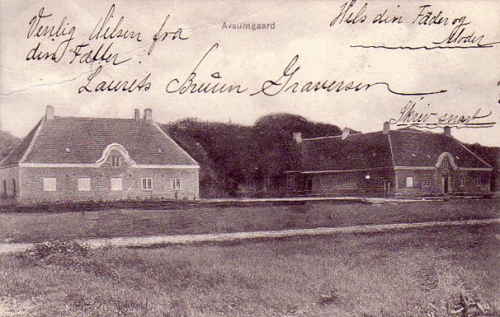 Avsumgaard
Venlig Hilsen fra
din Fætter
Laurets Bruun Graversen
Hils din Fader og
Moder
Skriv snart